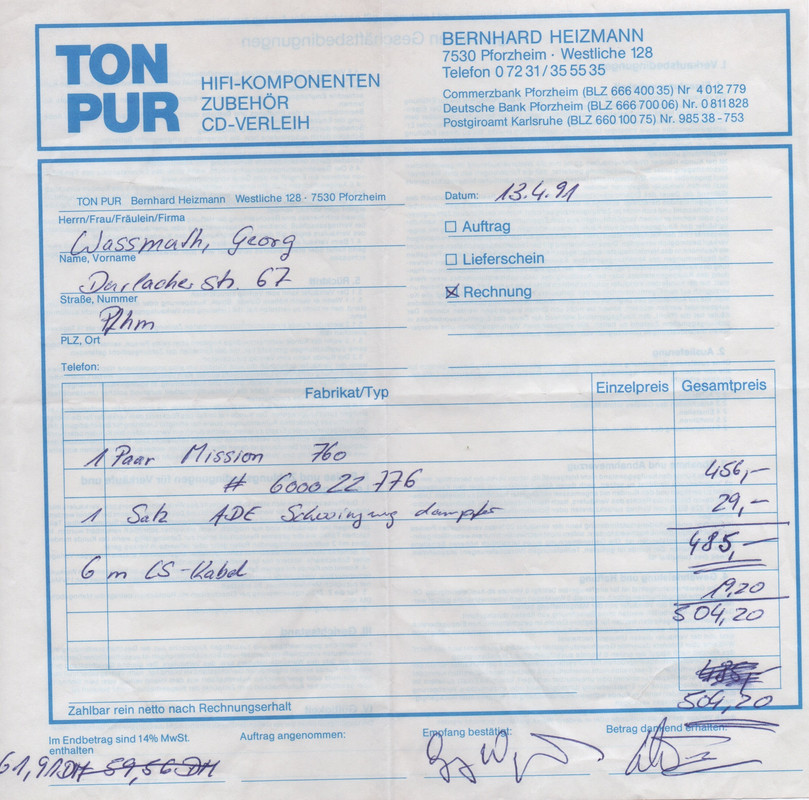 TON PUR
HIFI-KOMPONENTEN
ZUBEHÖR
CD-VERLEIH
BERNHARD HEIZMANN
7530 Pforzheim · Westliche 128
Telefon 0 72 31 / 35 55 35
Commerzbank Pforzheim (BLZ 666 400 35) Nr 4 012 779
Deutsche Bank Pforzheim (BLZ 666 700 06) Nr. 0 811 828
Postgiroamt Karlsruhe (BLZ 660 100 75) Nr. 985 38 - 753
TON PUR Bernhard Heizmann Westliche 128 - 7530 Pforzheim
Herrn/Frau/Fräulein/Firma
Wassmuth, Georg
Name, Vorname
Durlacher str. 67
Straße, Nummer
Pfhm
PLZ, Ort
Telefon:
Datum: 13.4.91
Auftrag
Lieferschein
Rechnung
Fabrikat/Typ Einzelpreis Gesamtpreis
1 Paar Mission 760 456,-
# 6000 22 776
1 Satz ADE Schwingungsdämpfer 29,-
485,-
6 m LS-Kabel 19,20
504,20
485,-
504,20
Zahlbar rein netto nach Rechnungserhalt
Im Endbetrag sind 14% MwSt. enthalten
61,91 DM 59,56 DM
Auftrag angenommen:
Empfang bestätigt:
Betrag dankend erhalten: